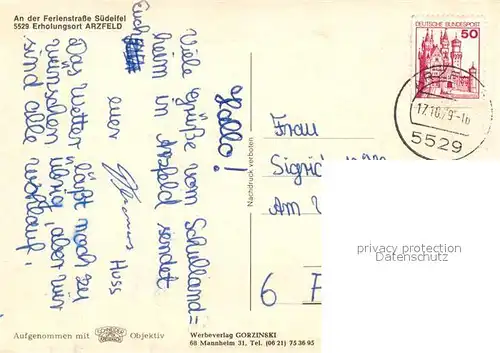 An der Ferienstraße Südeifel
5529 Erholungsort ARZFELD
Hallo!
Viele Grüße vom Schulland=
heim in Arzfeld sendet
Euch
euer Thomas Huss
Das Wetter läßt noch zu
wünschen übrig, aber wir
sind alle wohlauf.
Aufgenommen mit Objektiv
Nachdruck verboten
Werbeverlag GORZINSKI
68 Mannheim 31, Tel. (06 21) 75 36 95
DEUTSCHE BUNDESPOST
50
17.10.79-10
5529
Frau
Sigrid
Am
6 F
privacy protection
www.oldthing.de